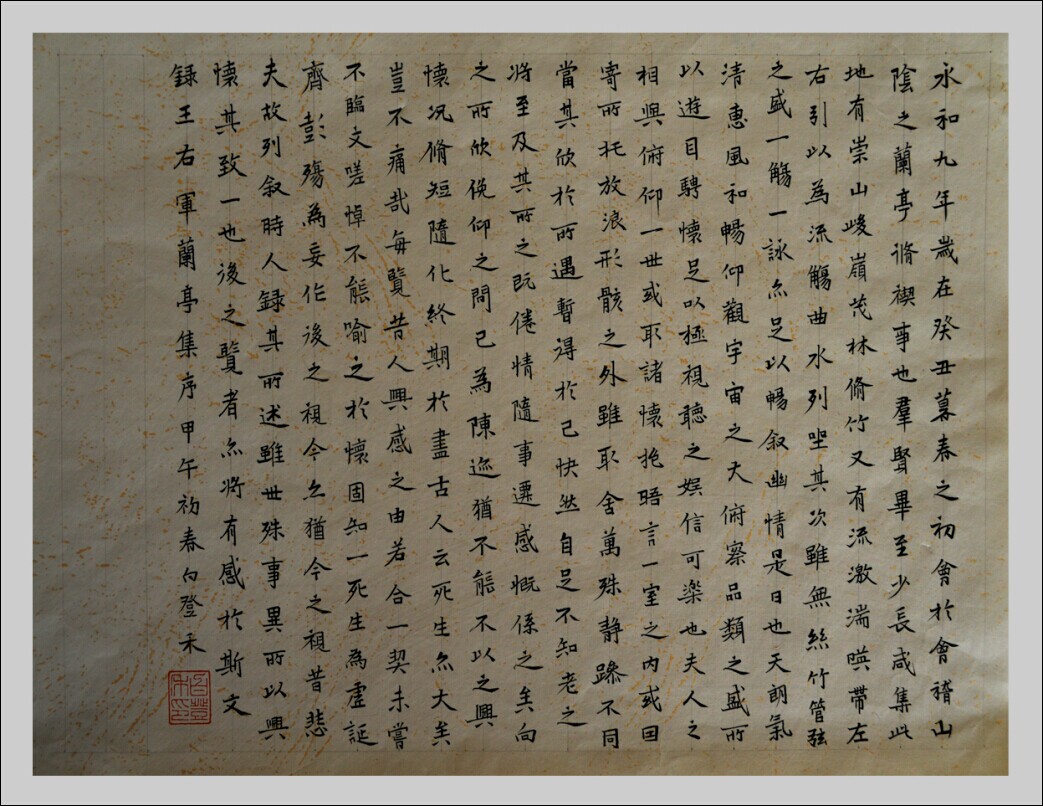 永和九年歲在癸丑暮春之初會於會稽山
陰之蘭亭脩禊事也羣賢畢至少長咸集此
地有崇山峻嶺茂林脩竹又有流激湍暎帶左
右引以為流觴曲水列坐其次雖無絲竹管弦
之盛一觴一詠亦足以暢叙幽情是日也天朗氣
清惠風和暢仰觀宇宙之大俯察品類之盛所
以遊目騁懷足以極視聽之娛信可樂也夫人之
相與俯仰一世或取諸懷抱晤言一室之內或因
寄所托放浪形骸之外雖取舍萬殊靜躁不同
當其欣於所遇暫得於己快然自足不知老之
將至及其所之既倦情隨事遷感慨係之矣向
之所欣俛仰之間已為陳迹猶不能不以之興
懷況脩短隨化終期於盡古人云死生亦大矣
豈不痛哉每覽昔人興感之由若合一契未嘗
不臨文嗟悼不能喻之於懷固知一死生為虛誕
齊彭殤為妄作後之視今亦猶今之視昔悲
夫故列叙時人録其所述雖世殊事異所以興
懷其致一也後之覽者亦將有感於斯文
録王右軍蘭亭集序甲午初春白登禾
白登禾印